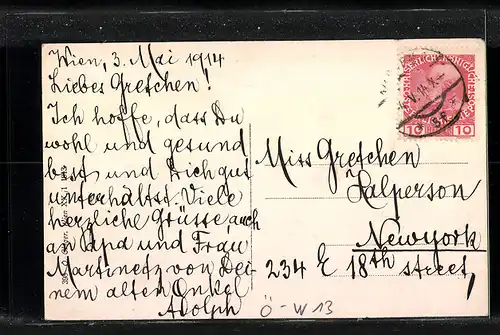 Wien, 3. Mai 1914
Liebes Gretchen!
Ich hoffe, dass Du
wohl und gesund
bist und Dich gut
unterhältst. Viele
herzliche Grüsse, auch
an Papa und Frau
Martinetz von Dei-
nem alten Onkel
Adolph
Miss Gretchen
Halperson
New york
234 E 18th street,
Ö-W 13
10 10